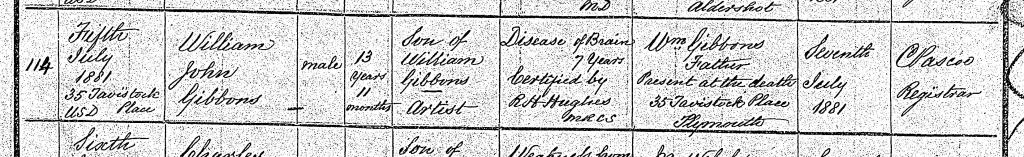 M.D
Aldershot
114
Fifth
July
1881
35 Tavistock
Place
USD
William
John
Gibbons
male
13
years
11
months
Son of
William
Gibbons
Artist
Disease of Brain
7 Years
Certified by
R. H. Hughes
MRCS
Wm Gibbons
Father
Present at the death
35 Tavistock Place
Plymouth
Seventh
July
1881
C Pascoe
Registrar
Sixth
Charles
Son of